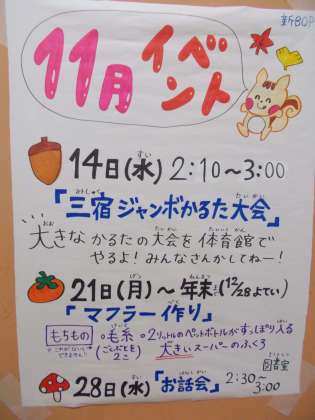 新BOP
11月
イベント
14日(水) 2:10〜3:00
「三宿ジャンボかるた大会」
大きなかるたの大会を体育館で
やるよ!みんなさんかしてねー!
21日(月)〜年末(12/28よてい)
「マフラー作り」
もちもの 。毛糸 。2リットルのペットボトルがすっぽり入る
※これがないとできません! (ごんぶとを2こ) 大きいスーパーのふくろ
28日(水)「お話会」 2:30〜3:00
図書室